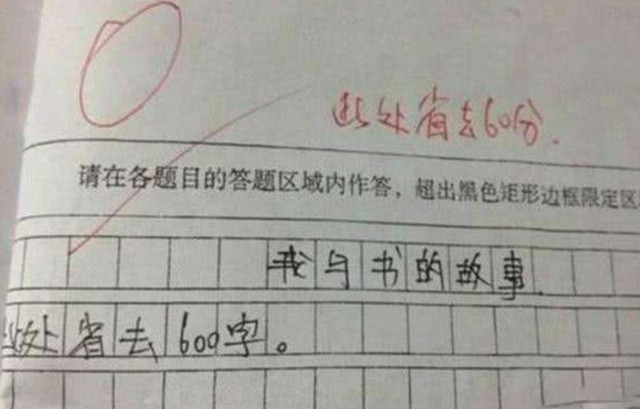 此处省去60分.
请在各题目的答题区域内作答，超出黑色矩形边框限定区
我与书的故事
此处省去600字。